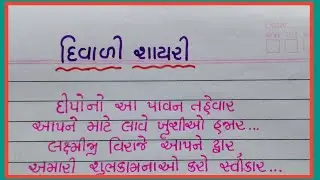 દિવાળી શાયરી
દીપોનો આ પાવન તહેવાર
આપને માટે લાવે ખુશીઓ હજાર...
લક્ષ્મીજી વિરાજે આપને દ્વાર,
અમારી શુભકામનાઓ કરો સ્વીકાર...